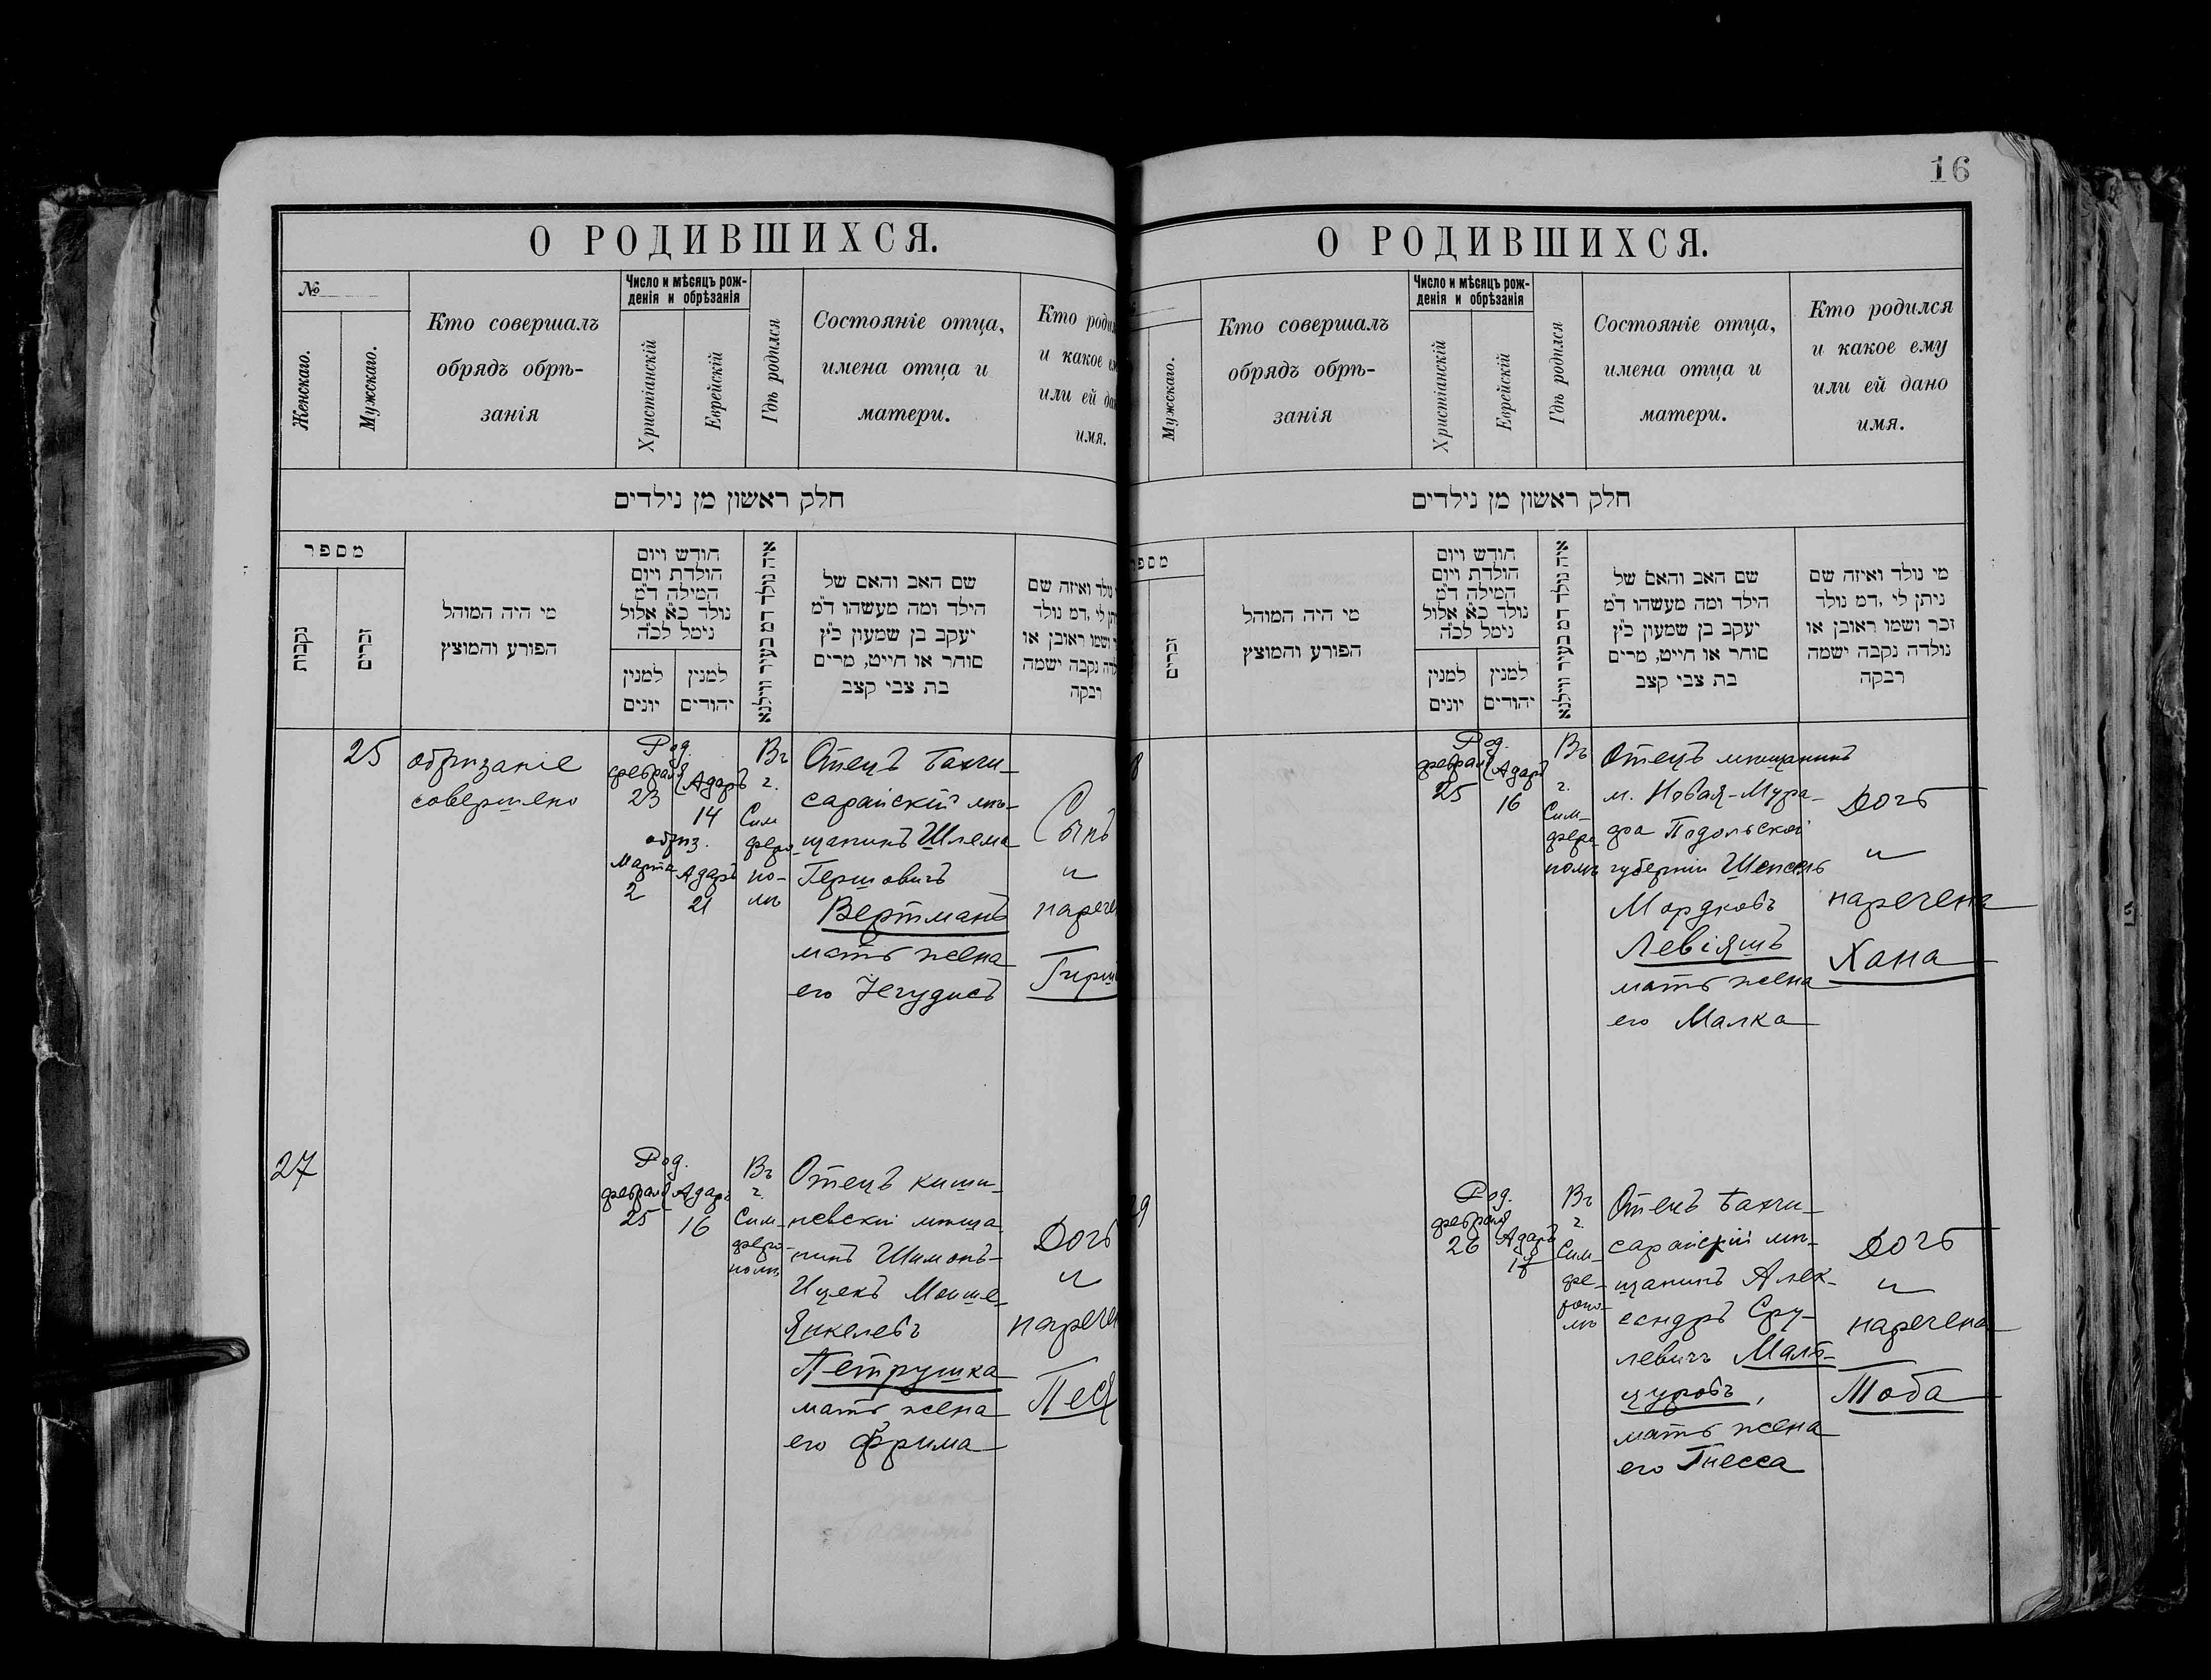 О РОДИВШИХСЯ.
№
Женскаго.
Мужскаго.
Кто совершалъ
обрядъ обрѣ-
занія
Число и мѣсяцъ рож-
денія и обрѣзанія
Христіанскій
Еврейскій
Гдѣ родился
Состояніе отца,
имена отца и
матери.
Кто роди
и какое е
или ей да
имя.
חלק ראשון מן נילדים
מספר
נקבות
זכרים
מי היה המוהל
הפורע והמוצץ
חודש ויום
הולדת ויום
המילה ד״מ
נולד כ״א אלול
נימל לכ״ה
למנין
יונים
למנין
יהודים
איה נולד דמ בעיר ווילנא
שם האב והאם של
הילד ומה מעשהו ד״מ
יעקב בן שמעון כ״ץ
סוחר או חייט, מרים
בת צבי קצב
נולד ואיזה שם
תן לי ,דמ נולד
ושמו ראובן או
לדה נקבה ישמה
רבקה
25
обрѣзаніе
совершено
Род.
февраля
23
Адаръ
14
обрѣз.
Марта
2
Адаръ
21
Въ
г.
Сим
феро-
по-
лѣ
Отецъ Бахчи-
сарайскій мѣ-
щанинъ Шлема
Гершовичъ
Вертманъ
мать жена
его Іегудисъ
Сынъ
и
нарече
Гирш
27
Род.
февраля
25
Адаръ
16
Въ
г.
Сим-
феро-
полѣ
Отецъ киши-
невскій мѣща
нинъ Шимонъ-
Ицекъ Моише-
Янкелевъ
Петрушка
мать жена
его Фрима
Дочь
и
нарече
Песя
16
О РОДИВШИХСЯ.
Мужскаго.
Кто совершалъ
обрядъ обрѣ-
занія
Число и мѣсяцъ рож-
денія и обрѣзанія
Христіанскій
Еврейскій
Гдѣ родился
Состояніе отца,
имена отца и
матери.
Кто родился
и какое ему
или ей дано
имя.
חלק ראשון מן נילדים
מספ
זכרים
מי היה המוהל
הפורע והמוצץ
חודש ויום
הולדת ויום
המילה ד״מ
נולד כ״א אלול
נימל לכ״ה
למנין
יונים
למנין
יהודים
איה נולד דמ בעיר ווילנא
שם האב והאם של
הילד ומה מעשהו ד״מ
יעקב בן שמעון כ״ץ
סוחר או חייט, מרים
בת צבי קצב
מי נולד ואיזה שם
ניתן לי ,דמ נולד
זכר ושמו ראובן או
נולדה נקבה ישמה
רבקה
8
Род.
февраля
25
Адаръ
16
Въ
г.
Сим-
феро
полѣ
Отецъ мѣщанинъ
м. Новая-Мура-
фа Подольской
губерніи Шепсель
Мордковъ
Левіяшъ
мать жена
его Малка
Дочь
и
наречена
Хана
9
Род.
февраля
26
Адаръ
Въ
г.
Сим-
фе-
ропо-
лѣ
Отецъ Бахчи-
сарайскій мѣ-
щанинъ Алек-
сандръ Сру-
левичъ Маль-
цуровъ,
мать жена
его Гнесса
Дочь
и
наречена
Тоба